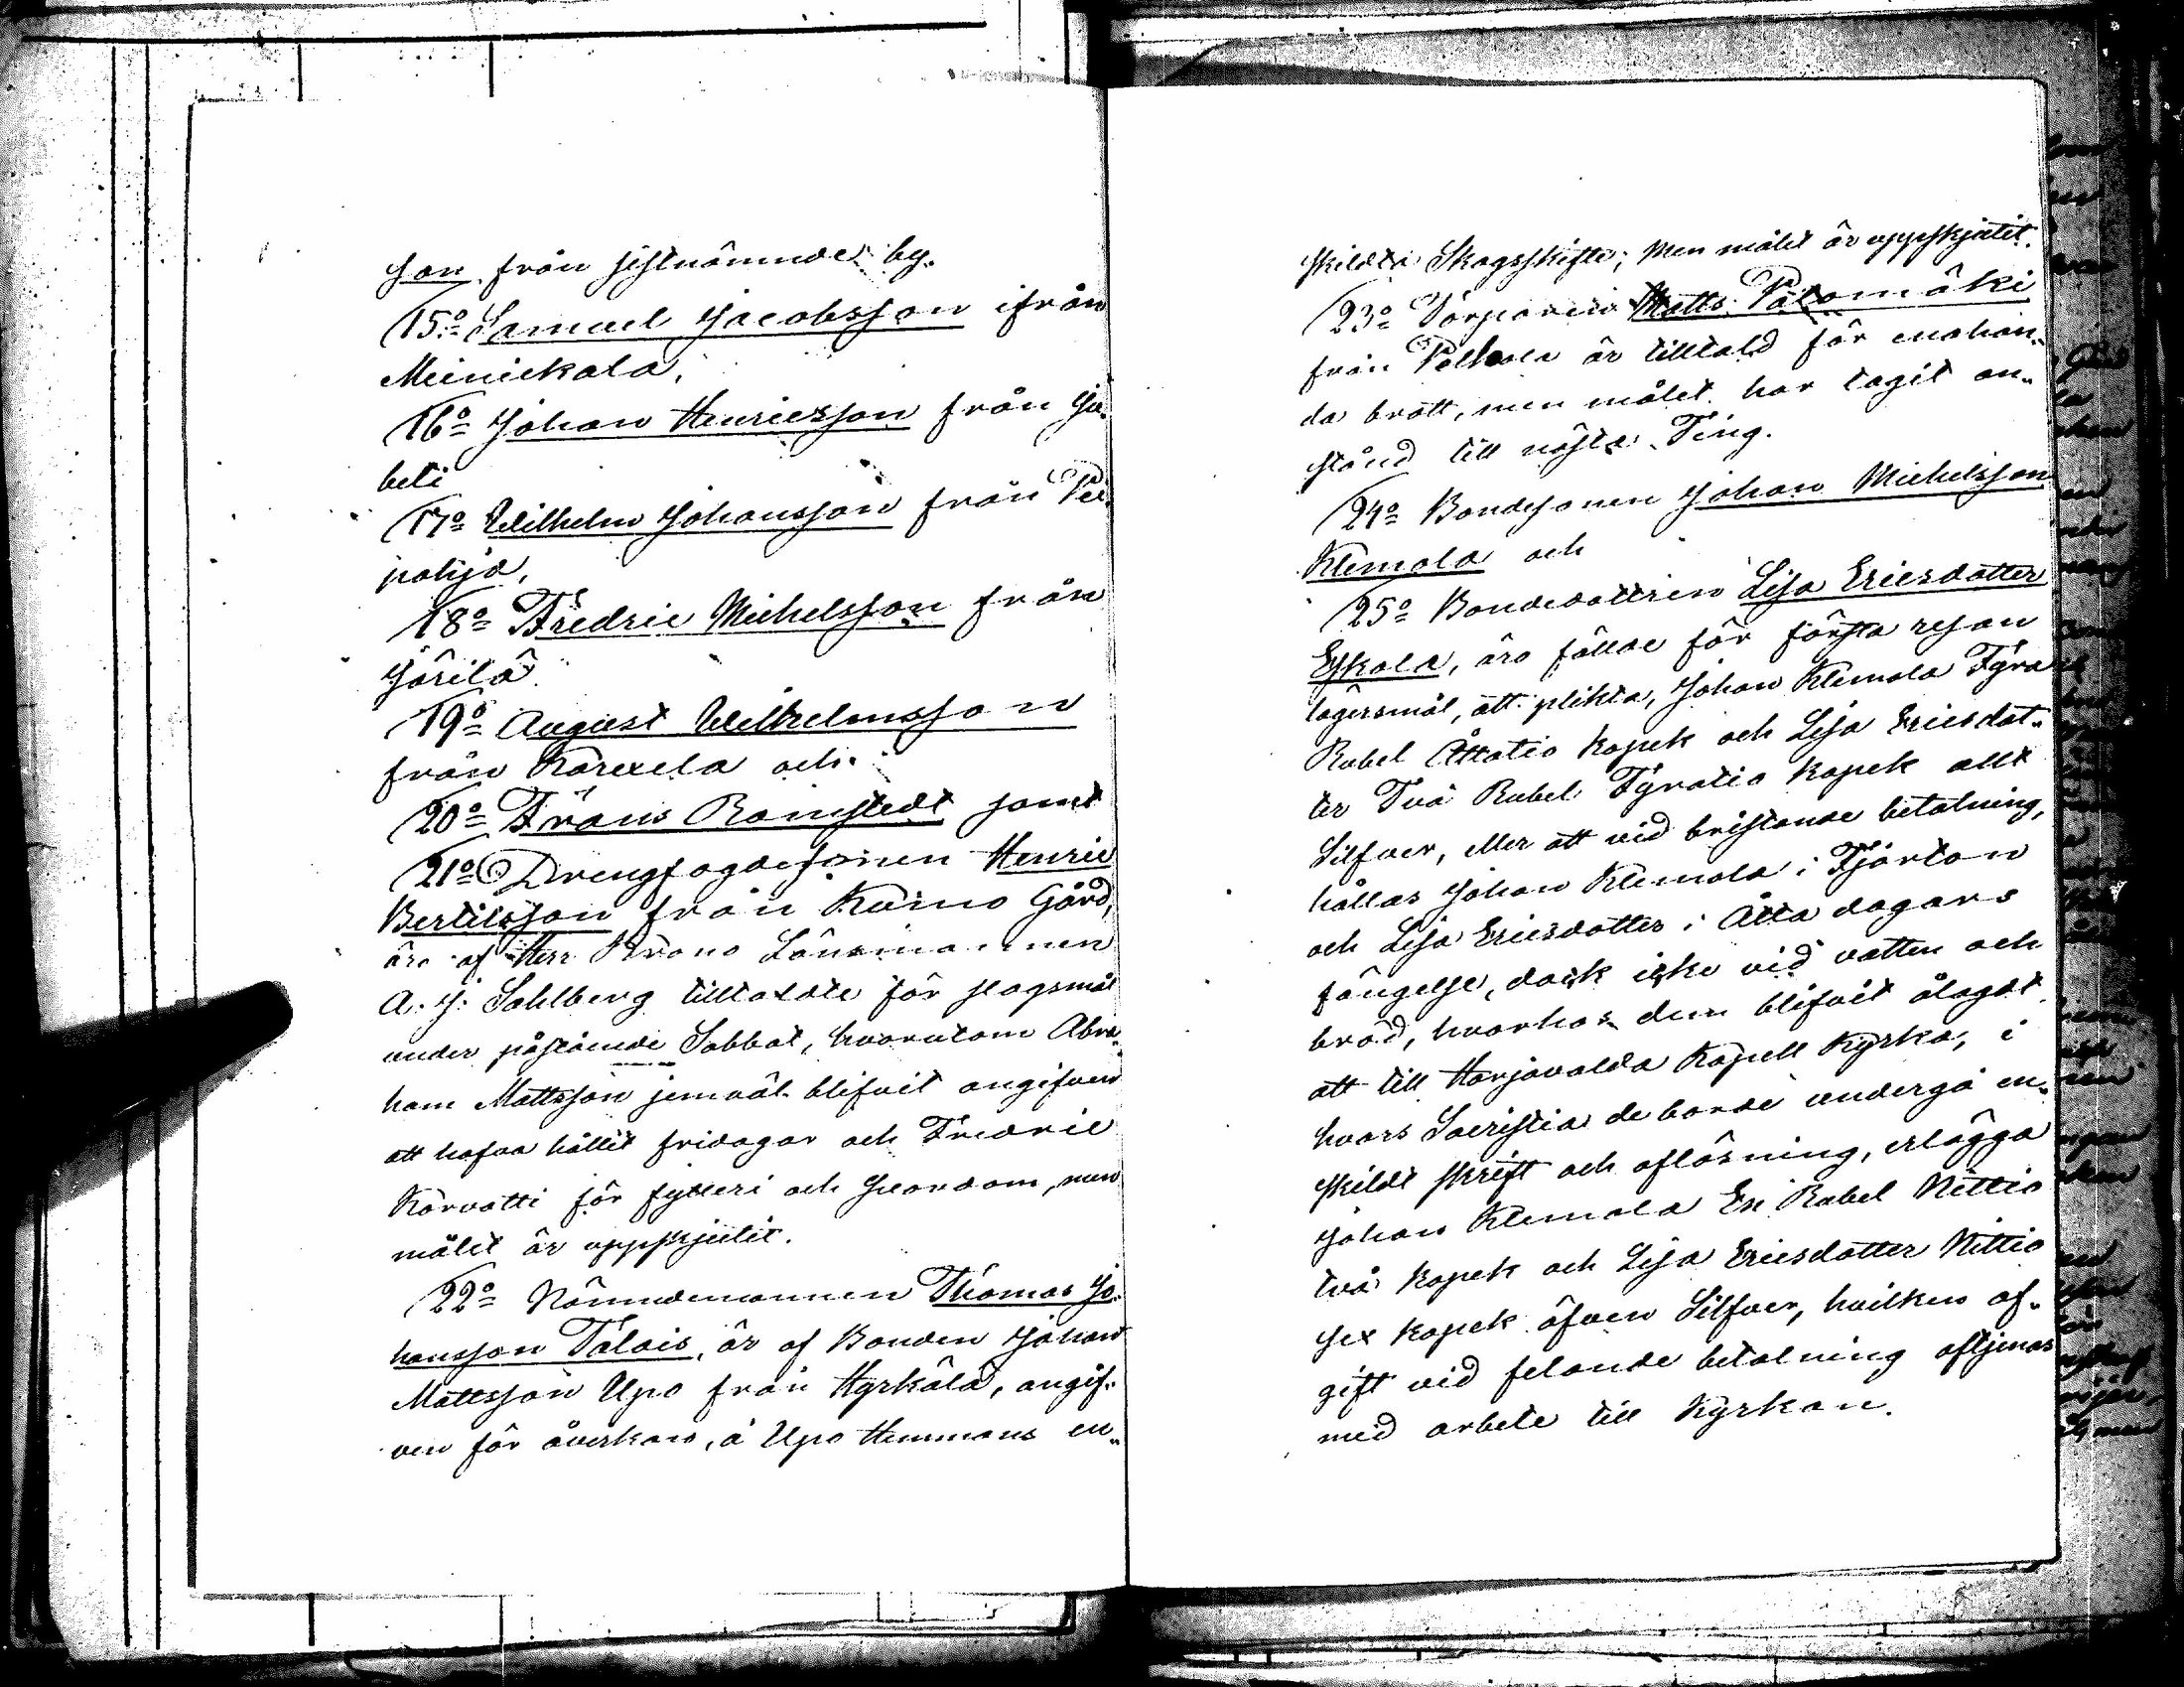 son från sistnämnde by.
15o Samuel Jacobsson ifrån
Meinickala,
16o Johan Henricsson från Ja-
beti
17o Wilhelm Johansson från Pei-
pohja,
18o Fredric Michelsson från
Järilä
19o August Wilhelmsson
från Karexela och
20o Frans Ramstedt samt
21o Drengfogdesonen Henric
Bertilsson från Kuino Gård,
äro af Herr Krono Länsmannen
A. J. Sahlberg tilltalte för slagsmål
under påstående Sabbat, hvarutom Abra-
ham Mattsson jemväl blifvit angifven
att hafva hållit fridagar och Fredric
Korvatti för fylleri och Svordom, men
målet är uppskjutit.
22o Nämndemannen Thomas Jo-
hansson Talois, är af Bonden Johan
Mattsson Upo från Hyrkölä, angif-
ven för åverkan, å Upo Hemmans en-
skildta Skogsskifte; Men målet är uppskjutit.
23o Torparen Matts Palomäki
från är tilltald för enahan-
da brott, men målet har tagit an-
stånd till nästa Ting.
24o Bondesonen Johan Michelsson
Klemola och
25o Bondedottren Lisa Ericsdotter
Eskola, äro fällde för första resan
lägersmål, att plikta, Johan Klemola Fyra
Rubel Åttatio kopek och Lisa Ericsdot-
ter Två Rubel Fyratio kopek allt
Silfver, eller att vid bristande betalning,
hållas Johan Klemola i Fjorton
och Lisa Ericsdotter i Åtta dagars
fängelse, dock icke vid vatten och
bröd, hvarhos dem blifvit ålagdt
att till Harjavalda Kapell Kyrka, i
hvars Sacristia de borde undergå en-
skildt skrift och aflösning, erlägga
Johan Klemola En Rubel Nittio
två kopek och Lisa Ericsdotter Nittio
sex kopek äfven Silfver, hvilken af-
gift vid felande betalning aftjenas
med arbete till Kyrkan.